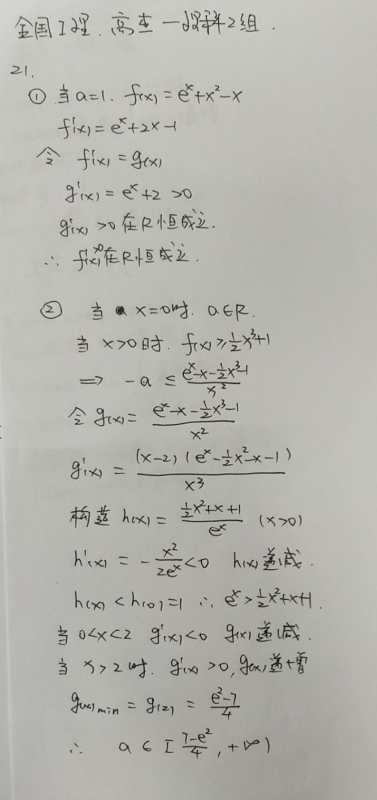 全国I理. 高考一
21.
① 当a=1. f(x)=e^x+x²-x
f'(x)=e^x+2x-1
令 f'(x)=g(x)
g'(x)=e^x+2>0
g'(x)>0在R恒成立.
∴ f'(x)>0在R恒成立.
② 当 x=0时. a∈R.
当 x>0时. f(x)≥½x³+1
⇒ -a ≤ (e^x-x-½x³-1)/x²
令g(x)= (e^x-x-½x³-1)/x²
g'(x)= (x-2)(e^x-½x²-x-1)/x³
构造 h(x)= (½x²+x+1)/e^x (x>0)
h'(x)= -x²/(2e^x)<0 h(x)递减.
h(x)<h(0)=1 ∴ e^x>½x²+x+1.
当 0<x<2 g'(x)<0 g(x)递减.
当 x>2时. g'(x)>0, g(x)递增
g(x)min=g(2)= (e²-7)/4
∴ a∈[(7-e²)/4, +∞)